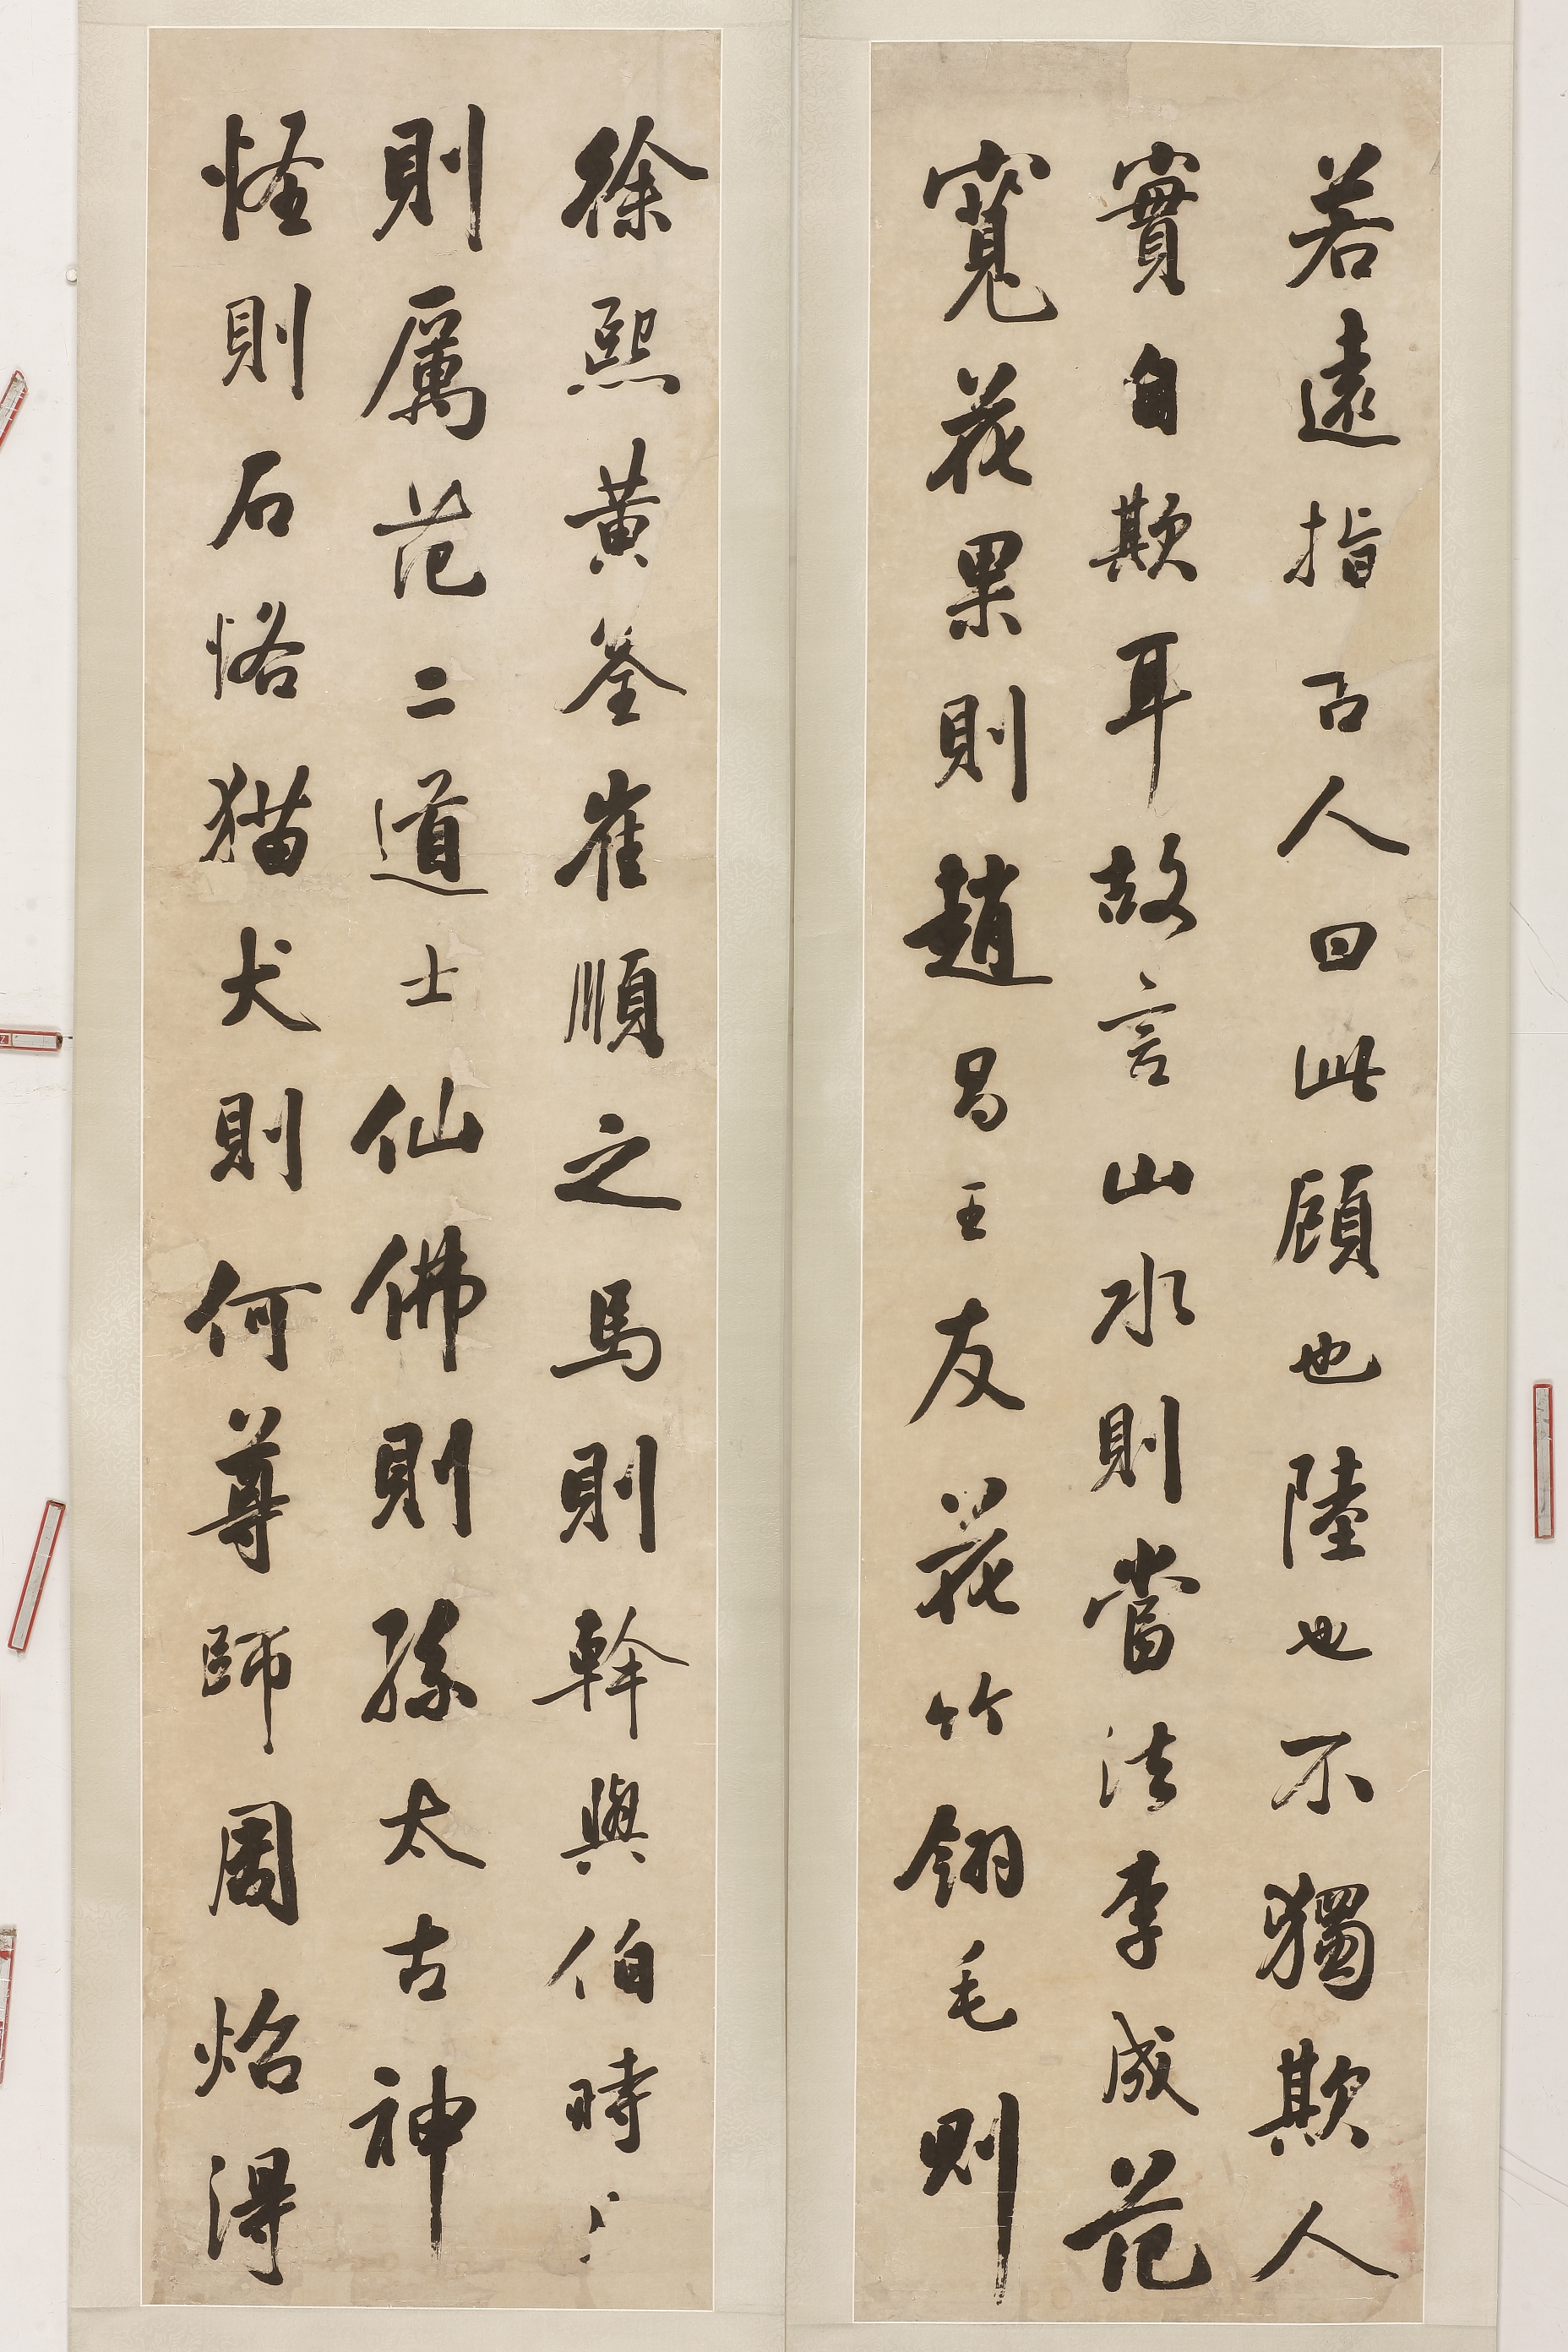 若遠指古人曰此顧也陸也不獨欺人
實自欺耳故言山水則當法李成范
寬花果則趙昌王友花竹翎毛則
徐熙黃筌崔順之馬則韓幹與伯時
則厲范二道士仙佛則孫太古神
怪則石恪猫犬則何尊師周炤得